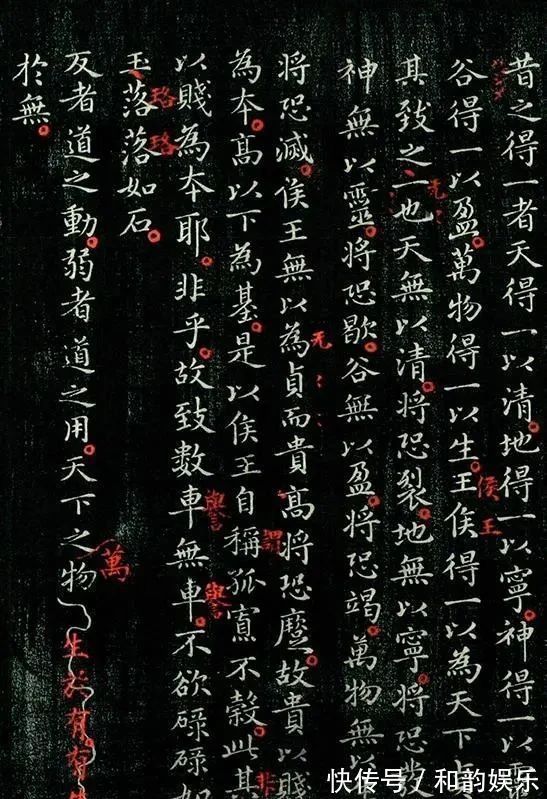 昔之得一者天得一以清地得一以寧神得一以靈
谷得一以盈萬物得一以生王侯得一以為天下
侯王
其致之一也天無以清將恐裂地無以寧將恐發
神無以靈將恐歇谷無以盈將恐竭萬物無以
將恐滅侯王無以為貞而貴高將恐蹷故貴以賤
无
為本高以下為基是以侯王自稱孤寡不穀此其
謂
非
以賤為本耶非乎故致數車無車不欲碌碌如
譽
譽
玉落落如石
珞
珞
反者道之動弱者道之用天下之物
萬
生於有有生
於無
快传号/和韵娱乐